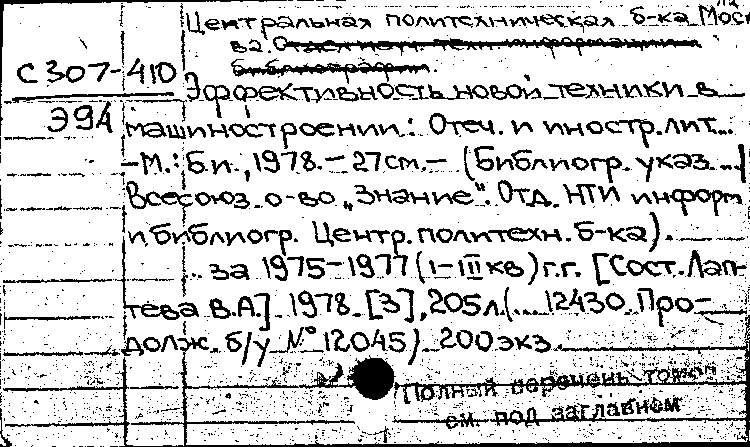 Центральная политехническая б-ка Моск
ва. Отдел науч. техн. информации
библиографии.
С307-410
Эффективность новой техники в
Э94
машиностроении: Отеч. и иностр. лит...
-М.: Б.и., 1978.- 27см.- (Библиогр. указ...
Всесоюз. о-во „Знание". Отд. НТИ информ
и библиогр. Центр. политехн. б-ка).
... за 1975-1977 (I-III кв) г.г. [Сост. Лап-
тева В.А.] 1978. [3], 205л. (... 12430. Про-
долж. б/у № 12045) 200экз.
Полный перечень томов
см. под заглавием